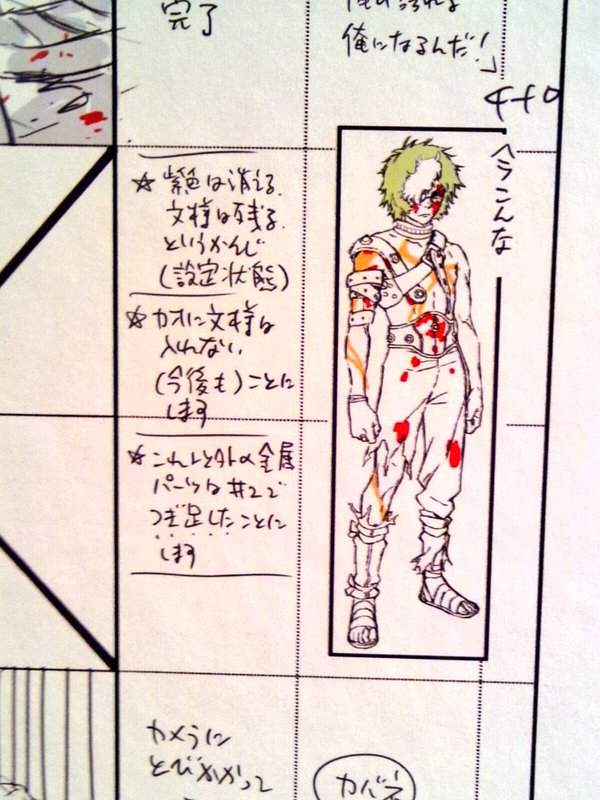 完了
俺になるんだ!」
4+0
こんな
☆ 紫色は消える.
文様は残る.
というかんじ
(設定状態)
☆ カオに文様は
入れない
(今後も)ことに
します
パーツは #22で
つぎ足したことに
します
カメラに
とびかかって
カバネ